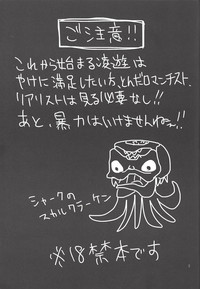 ご注意!!
これから始まる凌遊は
やけに満足したい方、とんだロマンチスト、
リアリストは見る必要なし!!
あと、暴力はいけませんねぇ!!
シャークの
スカルクラーケン
※18禁本です